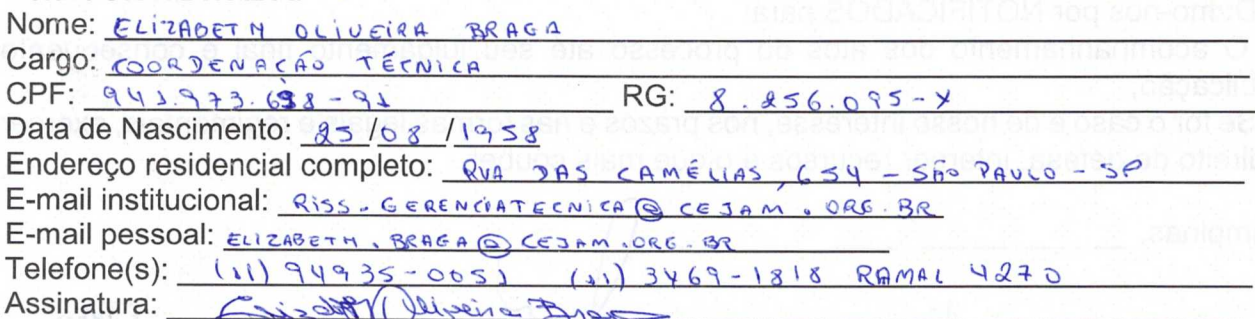 Nome: ELIZABETH OLIVEIRA BRAGA
Cargo: COORDENAÇÃO TÉCNICA
CPF: 941.973.698-91 RG: 8.256.095-X
Data de Nascimento: 25/08/1958
Endereço residencial completo: RUA DAS CAMÉLIAS, 654 - SÃO PAULO - SP
E-mail institucional: RISS.GERENCIATECNICA@CEJAM.ORG.BR
E-mail pessoal: ELIZABETH.BRAGA@CEJAM.ORG.BR
Telefone(s): (11) 94935-0051 (11) 3469-1818 RAMAL 4270
Assinatura: Elizabeth Oliveira Braga